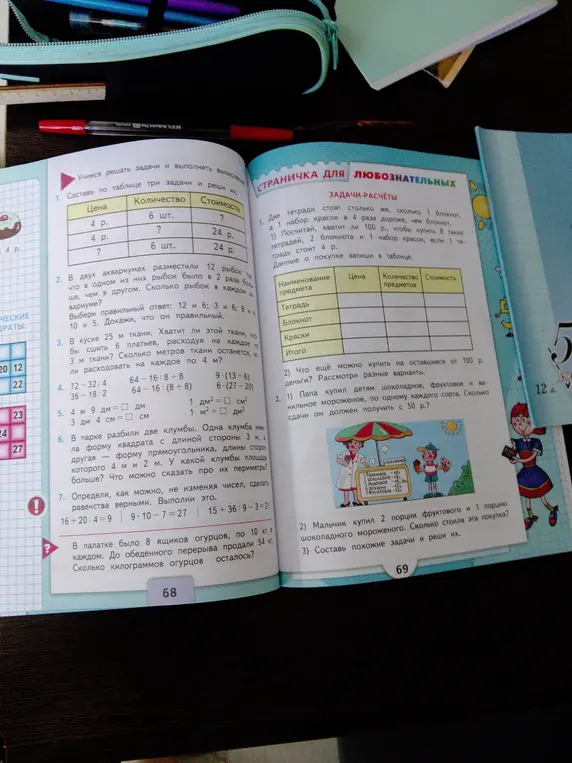 Учимся решать задачи и выполнять вычисления
1. Составь по таблице три задачи и реши их.
Цена Количество Стоимость
4 р. 6 шт. ?
4 р. ? 24 р.
? 6 шт. 24 р.
2. В двух аквариумах разместили 12 рыбок так,
что в одном из них рыбок было в 2 раза
ше, чем в другом. Сколько рыбок в каждом
вариуме?
Выбери правильный ответ: 12 и 6; 3 и 6; 8 и
10 и 5. Докажи, что он правильный.
3. В куске 25 м ткани. Хватит ли этой ткани,
бы сшить 6 платьев, расходуя на каждое
3 м ткани? Сколько метров ткани останется,
ли расходовать на каждое по 4 м?
4. 72 − 32 : 4 64 − 16 : 8 + 8 9 · (13 − 6)
36 − 18 : 2 64 − 16 : (8 + 8) 6 · (27 − 20)
5. 4 м 9 дм = □ дм 1 дм² = □ см²
3 дм 4 см = □ см 1 м² = □ дм²
6. В парке разбили две клумбы. Одна клумба
ла форму квадрата с длиной стороны 3 м, а
другая — форму прямоугольника, длины сторон
которого 4 м и 2 м. У какой клумбы площадь
больше? Что можно сказать про их периметры?
7. Определи, как можно, не изменяя чисел, сделать
равенства верными. Выполни это.
16 + 20 : 4 = 9 9 · 10 − 7 = 27 15 + 36 : 9 − 3 =
В палатке было 8 ящиков огурцов, по 10 кг в
каждом. До обеденного перерыва продали 54 кг.
Сколько килограммов огурцов осталось?
68
4 р.
20 12
22
23
24
27
!
?
СТРАНИЧКА ДЛЯ ЛЮБОЗНАТЕЛЬНЫХ
ЗАДАЧИ-РАСЧЁТЫ
1. Две тетради стоят столько же, сколько 1 блокнот,
а 1 набор красок в 4 раза дороже, чем блокнот.
1) Посчитай, хватит ли 100 р., чтобы купить 8 таких
тетрадей, 2 блокнота и 1 набор красок, если 1 те-
традь стоит 4 р.
Данные о покупке запиши в таблице.
Наименование предмета Цена Количество предметов Стоимость
Тетрадь
Блокнот
Краски
Итого
2) Что ещё можно купить на оставшиеся от 100 р.
деньги? Рассмотри разные варианты.
2. 1) Папа купил детям шоколадное, фруктовое и ва-
нильное мороженое, по одному каждого сорта. Сколько
сдачи он должен получить с 50 р.?
2) Мальчик купил 2 порции фруктового и 1 порцию
шоколадного мороженого. Сколько стоила эта покупка?
3) Составь похожие задачи и реши их.
69
5
12